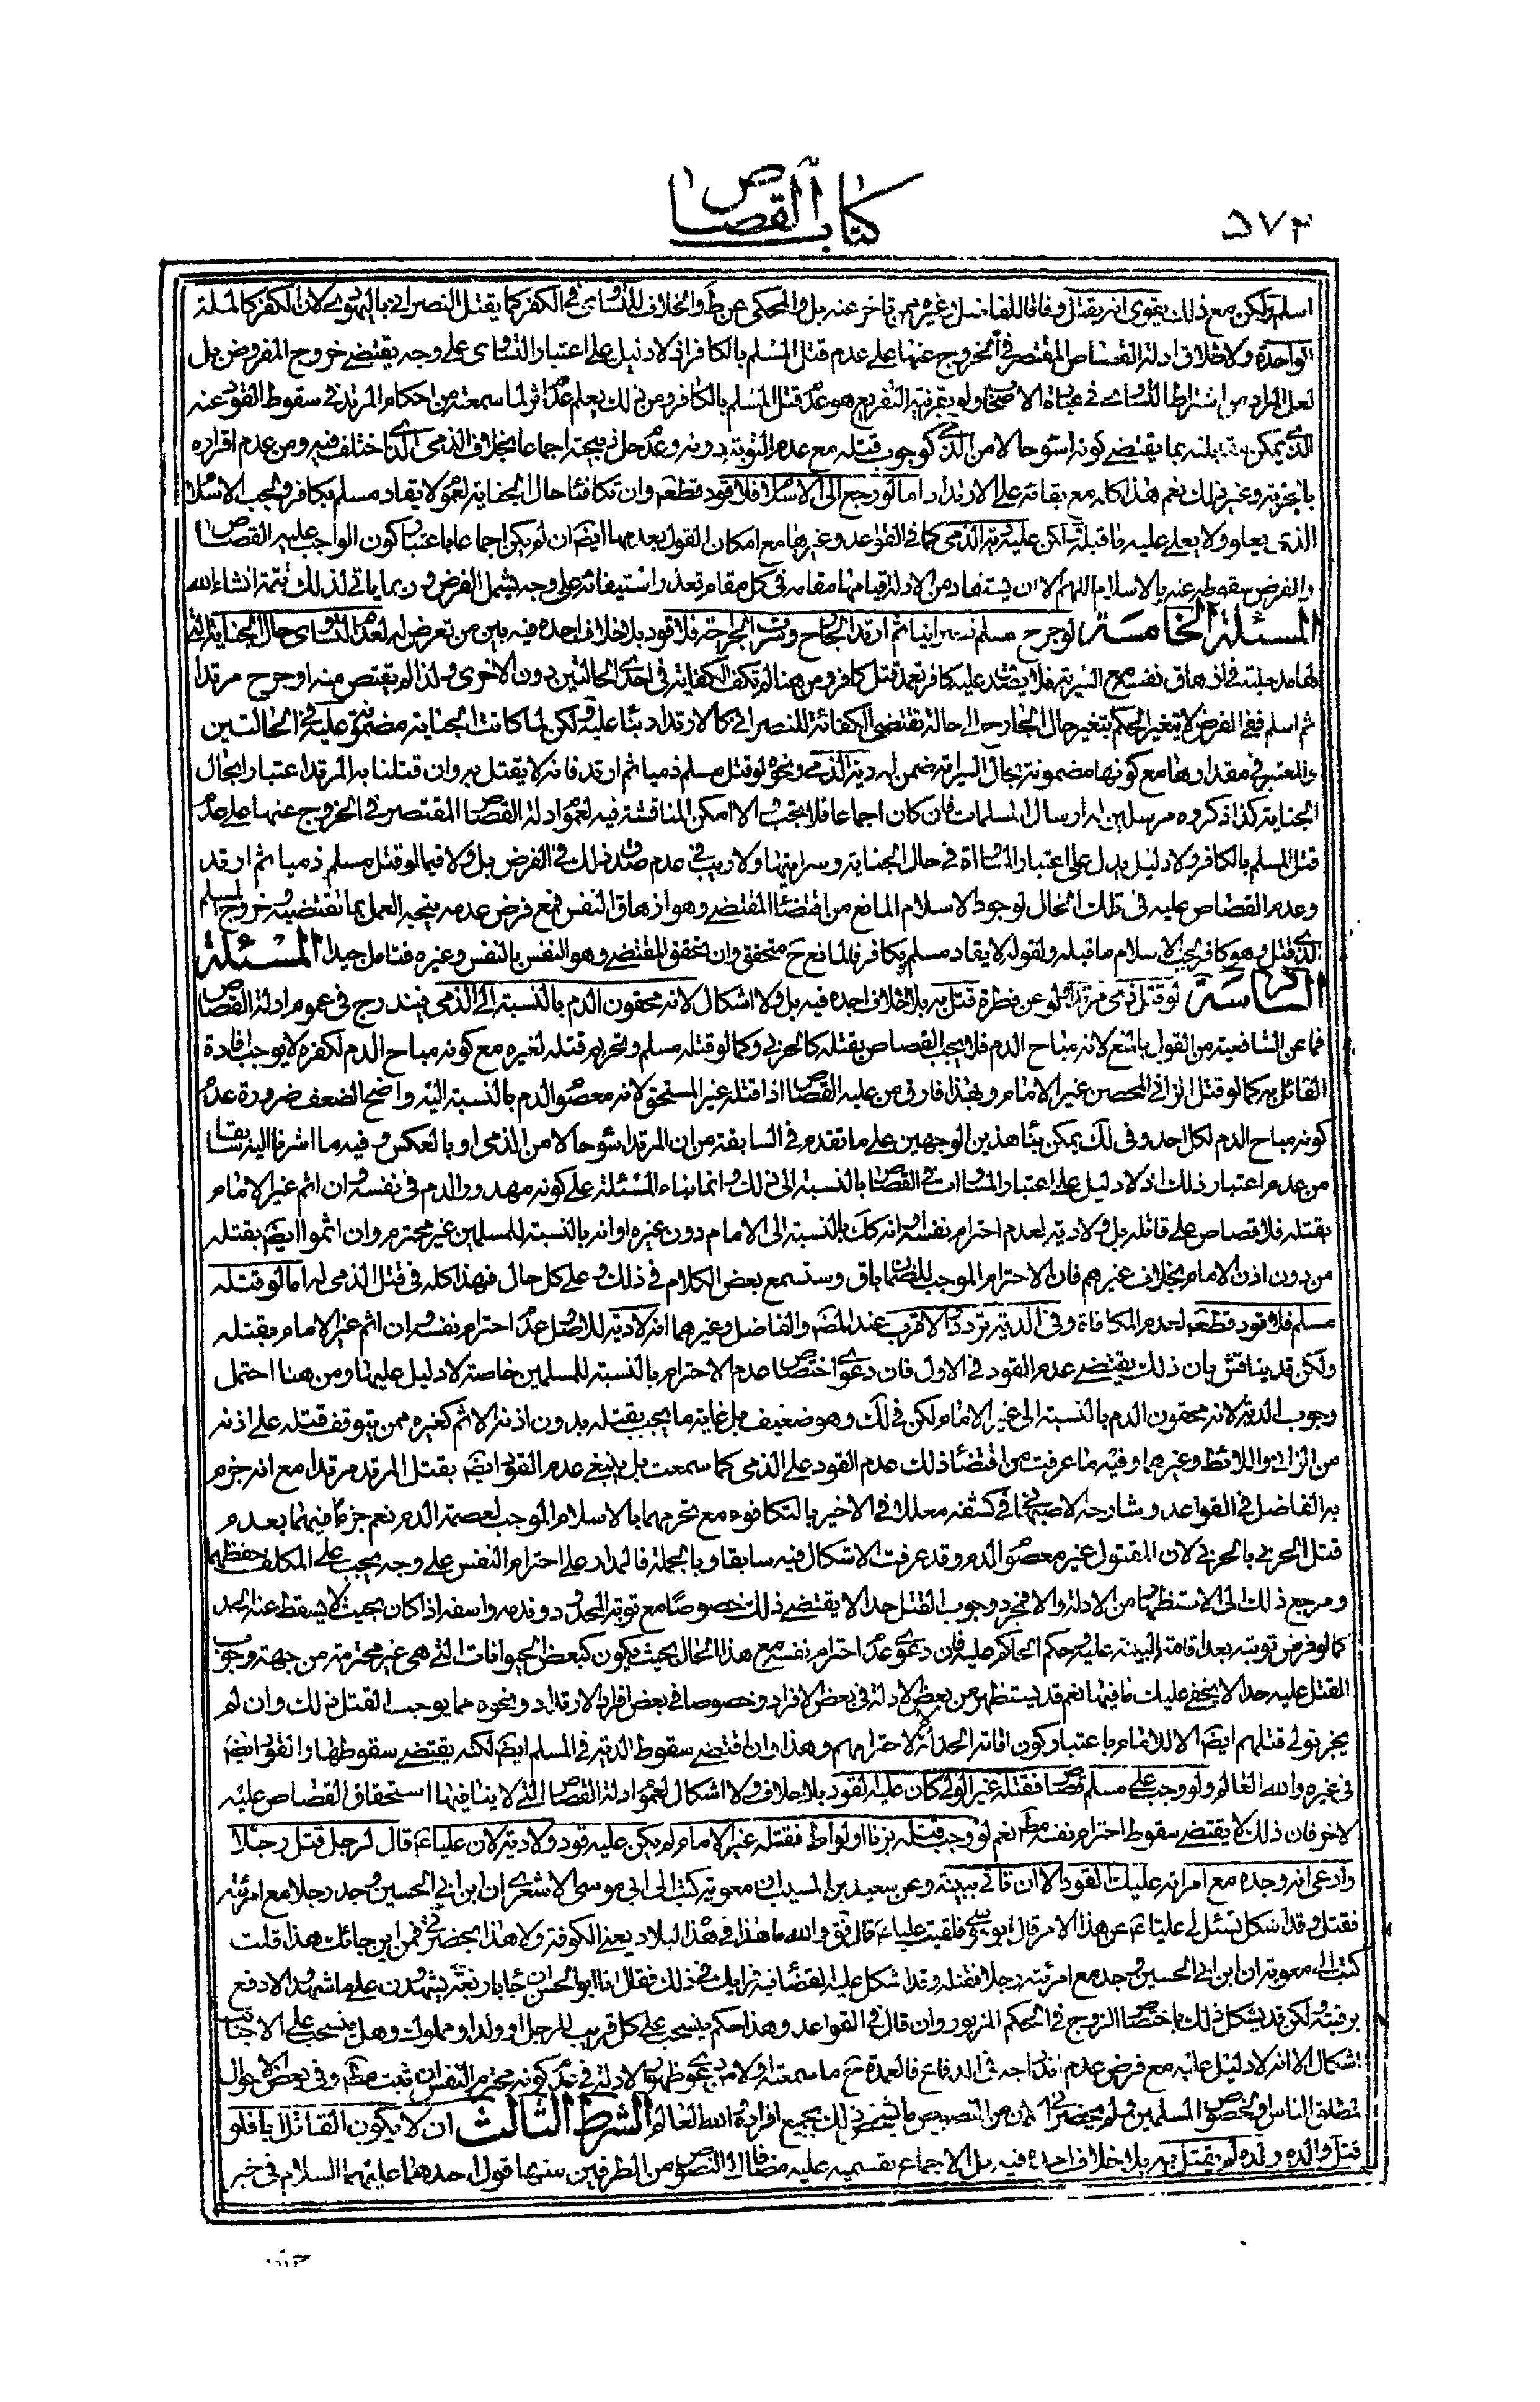 ٥٧٣
كتاب القصاص
اسلم ولكن مع ذلك يقوى انه يقتل وفاقا للفاضل وغيره ممن تاخر عنه بل والمحكى عن ط والخلاف للتساوى في الكفر كما يقتل النصرانى باليهودى لان الكفر كالملة
الواحدة ولاطلاق ادلة القصاص المقتصر في الخروج عنها على عدم قتل المسلم بالكافر اذ لا دليل على اعتبار التساوى على وجه يقتضى خروج المفروض بل
لعل المراد من اشتراط التساوى في عبارة الاصحاب ولو بقرنية التفريع هو عدم قتل المسلم بالكافر ومن ذلك يعلم عدم اثر لما سمعته من احكام المرتد في سقوط القود عنه
الذى يمكن مقابلته بما يقتضى كونه اسوء حالا من الذمى كوجوب قتله مع عدم التوبة دونه وعدم حل ذبيحته اجماعا بخلاف الذمى الذى اختلف فيه ومن عدم اقراره
بالجزية وغير ذلك نعم هذا كله مع بقائه على الارتداد اما لو رجع الى الاسلام فلا قود قطعا وان تكافئا حال الجناية لعموم لا يقاد مسلم بكافر ويجب الاسلام
الذى يعلو ولا يعلى عليه ما قبله لكن عليه دية الذمى كما في القواعد وغيرها مع امكان القول بعدمها ايضا ان لم يكن اجماعا باعتبار كون الواجب عليه القصاص
والفرض سقوطه عنه بالاسلام اللهم الا ان يستفاد من الادلة قيامها مقامه في كل مقام تعذر استيفائه على وجه يشمل الفرض وربما ياتى لذلك تتمة انشاء الله
المسئلة الخامسة لو جرح مسلم نصرانيا ثم ارتد الجارح وسرت الجراحة فلا قود بلا خلاف اجده فيه بين من تعرض له لعدم التساوى حال الجناية التى
لها مدخلية في ازهاق نفسه مع السراية فلا يصدق عليه كافر تعمد قتل كافر ومن هنا لم تكف الكفاية في احدى الحالتين دون الاخرى ولذا لم يقتص منه لو جرح مرتدا
ثم اسلم ففى الفرض لا يتغير الحكم بتغير حال الجارح الى حالة تقتضى الكفائة للنصرانى كالارتداد بناء عليه ولكن لما كانت الجناية مضمونة عليه في الحالتين
والمعتبر في مقدارها مع كونها مضمونة بحال السراية ضمن له دية الذمى ونحوه لو قتل مسلم ذميا ثم ارتد فانه لا يقتل به وان قتلنا به المرتد اعتبارا بحال
الجناية كذا ذكروه مرسلين له ارسال المسلمات فان كان اجماعا فلا بحث والا امكن المناقشة فيه لعموم ادلة القصاص المقتصر في الخروج عنها على عدم
قتل المسلم بالكافر ولا دليل يدل على اعتبار المساواة في حال الجناية وسرايتها ولا ريب في عدم صدق ذلك في الفرض بل ولا فيما لو قتل مسلم ذميا ثم ارتد
وعدم القصاص عليه في تلك الحال لوجود الاسلام المانع من اقتضاء المقتضى وهو ازهاق النفس فمع فرض عدمه يتجه العمل بما تقتضيه وخروج المسلم
الذى قتل وهو كافر يجب الاسلام ما قبله ولقوله لا يقاد مسلم بكافر فالمانع ح متحقق وان تحقق المقتضى وهو النفس بالنفس وغيره فتامل جيدا المسئلة
السادسة لو قتل ذمى مرتدا ولو عن فطرة قتل به بلا خلاف اجده فيه بل ولا اشكال لانه محقون الدم بالنسبة الى الذمى فيندرج في عموم ادلة القصاص
فما عن الشافعية من القول بالمنع لانه مباح الدم فلا يجب القصاص بقتله كالحربى وكما لو قتله مسلم وتحريم قتله لغيره مع كونه مباح الدم لكفره لا يوجب اقادة
القاتل به كما لو قتل الزانى المحصن غير الامام وبهذا فارق من عليه القصاص اذا قتله غير المستحق لانه معصوم الدم بالنسبة اليه واضح الضعف ضرورة عدم
كونه مباح الدم لكل احد وفي لك يمكن بناء هذين الوجهين على ما تقدم في السابقة من ان المرتد اسوء حالا من الذمى او بالعكس وفيه ما اشرنا اليه سابقا
من عدم اعتبار ذلك اذ لا دليل على اعتبار المساوات في القصاص بالنسبة الى ذلك وانما بناء المسئلة على كونه مهدور الدم في نفسه وان اثم غير الامام
بقتله فلا قصاص على قاتله بل ولا دية لعدم احترام نفسه او انه كك بالنسبة الى الامام دون غيره او انه بالنسبة للمسلمين غير محترم وان اثموا ايضا بقتله
من دون اذن الامام بخلاف غيرهم فان الاحترام الموجب للضمان باق وستسمع بعض الكلام في ذلك وعلى كل حال فهذا كله في قتل الذمى له اما لو قتله
مسلم فلا قود قطعا لعدم المكافاة وفي الدية تردد والاقرب عند المصنف والفاضل وغيرهما انه لا دية للاصل وعدم احترام نفسه وان اثم غير الامام بقتله
ولكن قد يناقش بان ذلك يقتضى عدم القود في الاول فان دعوى اختصاص عدم الاحترام بالنسبة للمسلمين خاصة لا دليل عليها ومن هنا احتمل
وجوب الدية لانه محقون الدم بالنسبة الى غير الامام لكن في لك وهو ضعيف بل غاية ما يجب بقتله بدون اذنه الاثم كغيره ممن يتوقف قتله على اذنه
من الزانى واللائط وغيرهما وفيه ما عرفت من اقتضاء ذلك عدم القود على الذمى كما سمعت بل ينبغى عدم القود ايضا بقتل المرتد مرتدا مع انه جزم
به الفاضل في القواعد وشارحه الاصبهانى في كشفه معللا في الاخير بالتكافوء مع تحرمهما بالاسلام الموجب لعصمة الدم نعم جزما فيهما بعدم
قتل الحربى بالحربى لان المقتول غير معصوم الدم وقد عرفت الاشكال فيه سابقا وبالجملة فالمدار على احترام النفس على وجه يجب على المكلف حفظها
ومرجع ذلك الى الاستظهار من الادلة والا فمجرد وجوب القتل حدا لا يقتضى ذلك خصوصا مع توبة المحدود وندمه واسفه اذا كان بحيث لا يسقط عنه الحد
كما لو فرض توبته بعد اقامة البينة عليه وحكم الحاكم عليه فان دعوى عدم احترام نفسه مع هذا الحال بحيث يكون كبعض الحيوانات التى هى غير محترمة من جهة وجوب
القتل عليه حدا لا يخفى عليك ما فيها نعم قد يستظهر من بعض الادلة في بعض الافراد وخصوصا في بعض افراد الارتداد ونحوه مما يوجب القتل ذلك وان لم
يجز تولى قتلهم ايضا الا للامام باعتبار كون اقامة الحد له لا لاحترامهم وهذا وان اقتضى سقوط الدية في المسلم ايضا لكنه يقتضى سقوطها والقود ايضا
في غيره والله العالم ولو وجب على مسلم قصاص فقتله غير الولى كان عليه القود بلا خلاف ولا اشكال لعموم ادلة القصاص التى لا ينافيها استحقاق القصاص عليه
لاخر فان ذلك لا يقتضى سقوط احترام نفسه مط نعم لو وجب قتله بزنا او لواط فقتله غير الامام لم يكن عليه قود ولا دية لان عليا ع قال لرجل قتل رجلا
وادعى انه وجده مع امراته عليك القود الا ان تاتى ببينة وعن سعيد بن المسيب ان معوية كتب الى ابى موسى الاشعرى ان ابن ابى الحسين وجد رجلا مع امرئته
فقتله وقد اشكل فسئل لى عليا ع عن هذا الامر قال ابو موسى فلقيت عليا ع قال فق والله ما هذا في هذه البلاد يعنى الكوفة ولا هذا بحضرتى فمن اين جائك هذا قلت
كتب الى معوية ان ابن ابى الحسين وجد مع امرئته رجلا فقتله وقد اشكل عليه القضاء فيه فرايك في ذلك فقال انا ابو الحسن ان جاء باربعة يشهدون على ما شهد والا دفع
برمته ولكن قد يشكل ذلك باختصاص الزوج في الحكم المزبور وان قال في القواعد وهذا حكم ينسحب على كل قريب للرجل او ولد او مملوك وهل ينسحب على الاجانب
اشكال الا انه لا دليل عليه مع فرض عدم اندراجه في الدفاع فالعمدة ح ما سمعته اولا من دعوى ظهور الادلة في عدم كونه محترم النفس ان ثبت مط وفي بعض الاحوال
لمطلق الناس او لخصوص المسلمين ولم يحضرنى الان من النصوص ما يشخص ذلك بجميع افراده والله العالم الشرط الثالث ان لا يكون القاتل ابا فلو
قتل والده ولده لم يقتل به بلا خلاف اجده فيه بل الاجماع بقسميه عليه مضافا الى النصوص من الطرفين منها قول احدهما عليهما السلام في خبر